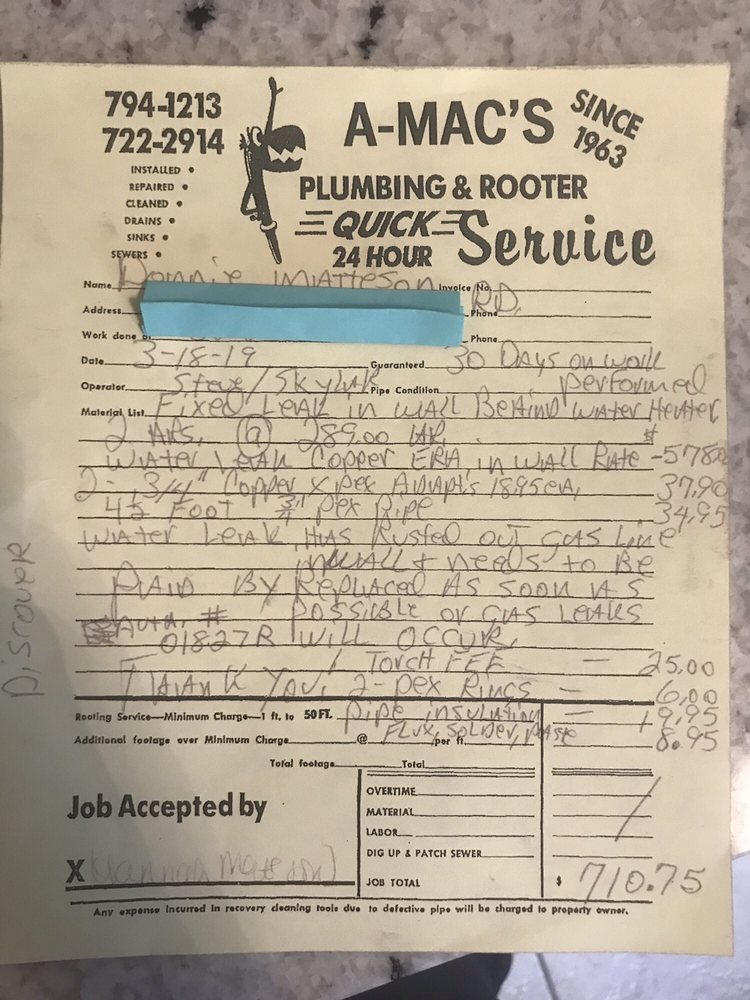 794-1213
722-2914
INSTALLED •
REPAIRED •
CLEANED •
DRAINS •
SINKS •
SEWERS •
A-MAC'S
SINCE 1963
PLUMBING & ROOTER
QUICK
24 HOUR
Service
Name Donnie Matteson Invoice No.
Address RD. Phone
Work done Phone
Date 3-18-19 Guaranteed 30 Days on work
Operator Steve/Skylar Pipe Condition performed
Material List Fixed Leak in wall Behind water Heater
2 HRS. @ 289.00 HR. $
Water Leak Copper in wall Rate - 578.00
2 - 3/4" Copper x pex Adapt's 18.95 ea, 37.90
4½ Foot 3/4" pex pipe 34.95
Water Leak Has Rusted out gas Line
in wall & needs to Be
PAID BY Replaced AS SOON AS
Discover
Auth. # possible or gas Leaks
01827R will occur,
Torch FEE — 25.00
Thank You! 2-pex Rings — 6.00
Rooting Service—Minimum Charge—1 ft. to 50 FT. pipe insulation — 19.95
Additional footage over Minimum Charge @ per ft. Flux, solder, paste 8.95
Total footage Total
Job Accepted by
X
OVERTIME
MATERIAL
LABOR
DIG UP & PATCH SEWER
JOB TOTAL $ 710.75
Any expense incurred in recovery cleaning tools due to defective pipe will be charged to property owner.